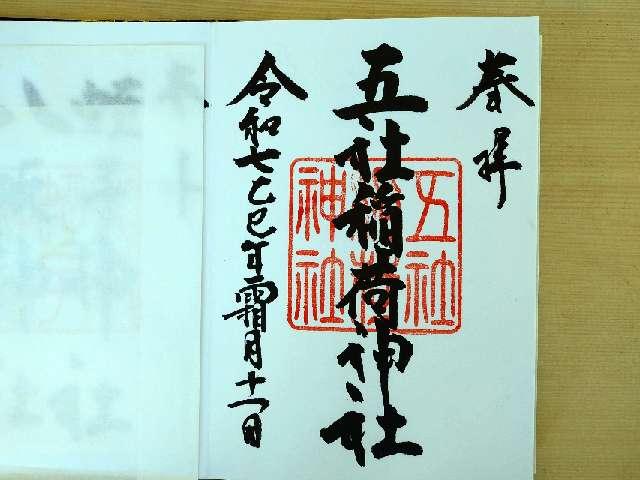 奉拝
五社稲荷神社
五社
稲荷
神社
令和七乙巳年霜月十一日